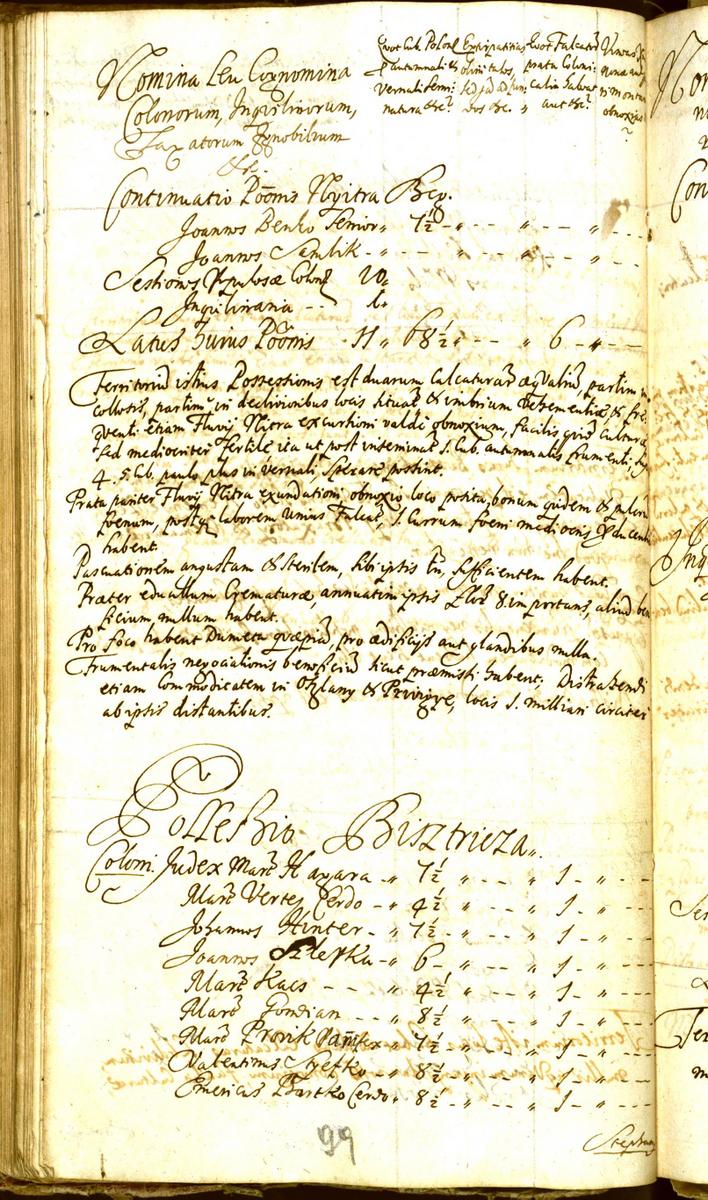 Nomina seu Cognomina
Colonorum, Inquilinorum,
Taxatorum Ignobilium
&c.
Quot Cub. Poson
p autumnali &
vernali semi
natura &c?
Exirpatitias
olim tales,
sed jad
&c.
Quot Falcat
prata Coloni
calia habeat
aut &c?
Vineas
montan
obnoxias
?
Continuatio Poōnis Nyitra Bey.
Joannes Benko Senior „ 7½ - „ - - - „ - „ - - -
Joannes Samlik - „ - - „ - - - „ - „ - - -
Sessiones Populosæ Colon 10.
Inquilinaria - - 1.
Latus hujus Poōnis - 11 „ 68½ „ - - - „ 6 - „ - - -
Territoriū istius Possessionis est duarum Calcaturarū æqualiū, partim in
collosis, partim in declivioribus locis situat & imbrium vehementiæ & fre
quenti etiam Fluvij Nitra excursioni valde obnoxium, facilis quid culturæ
sed mediocriter fertile ita ut post inseminat 1. Cub. autumnalis frumenti,
4. 5. Cub. paulo plus in vernali, sperare possint.
Prata pariter Fluvij Nitra exundationi, obnoxio loco posita, bonum quidem & pulchrū
foenum, postq laborem unius Falcat, 1. Currum foeni mediocris Educenti
habent.
Pascuationem angustam & sterilem, sibi ipsis tn, sufficientem habent.
Præter educillum Crematuræ, annuatim ipsis flor 8. in portans, aliud ben
ficium, nullum habent.
Pro foco habent Dumeta quæpiā, pro ædificijs aut glandibus nulla.
Frumentalis negociationis beneficiū sicut præmissi habent, Distrahendi
etiam Commoditatem in Oszlany & Privigye, locis 1. milliari circiter
ab ipsis distantibus.
Possessio Bisztricza „.
Coloni. Judex Mart Hagara - „ 7½ „ - - - „ 1 - „ - - -
Mart Vertes Cerdo - „ 4½ - „ - - - „ 1 - „ - - -
Johannes Hinter - „ 7½ - „ - - - „ 1 - „ - - -
Joannes Szlepka - „ 6 - „ - - - „ 1 - „ - - -
Mart Kacs - - „ 4½ „ - - - „ 1 - „ - - -
Mart Gondian - - „ 8½ - „ - - - „ 1 - „ - - -
Mart Provik „ 7½ - „ - - - „ 1 - „ - - -
Valentinus Styefko „ 8½ - „ - - - „ 1 - „ - - -
Emericus Bartko Cerdo „ 8½ - „ - - - „ 1 - „ - - -
99
Stephan